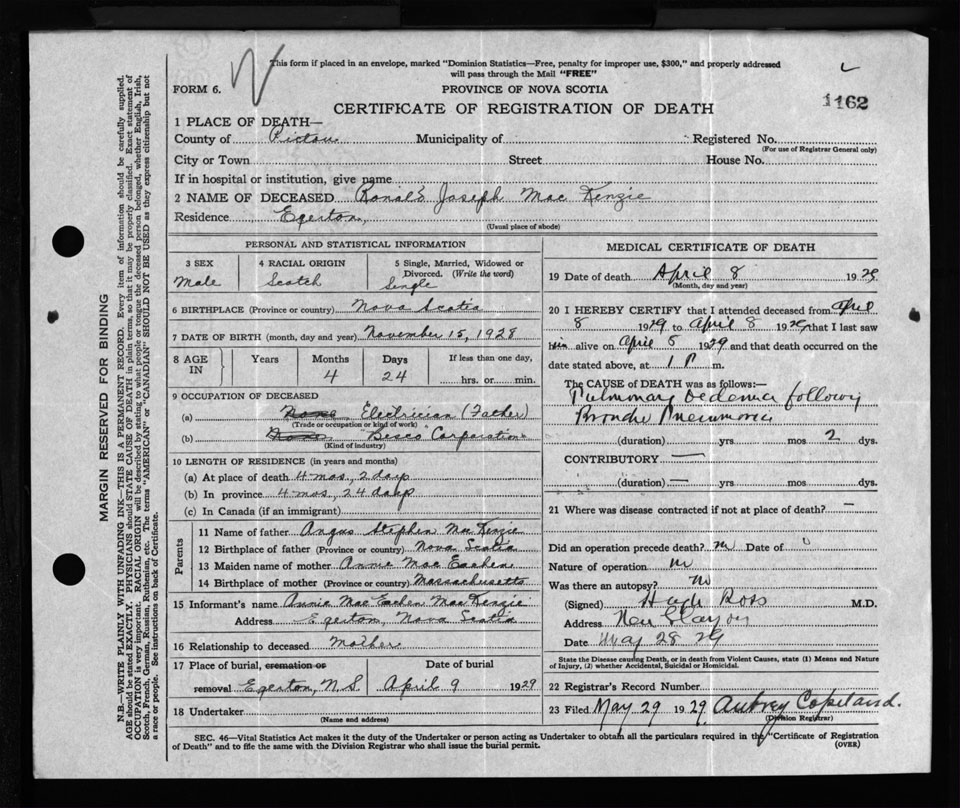 This form if placed in an envelope, marked "Dominion Statistics—Free, penalty for improper use, $300," and properly addressed
will pass through the Mail "FREE"
FORM 6.
PROVINCE OF NOVA SCOTIA
CERTIFICATE OF REGISTRATION OF DEATH
1162
1 PLACE OF DEATH—
County of Pictou Municipality of Registered No.
(For use of Registrar General only)
City or Town Street House No.
If in hospital or institution, give name
2 NAME OF DECEASED Ronald Joseph MacKenzie
Residence Egerton,
(Usual place of abode)
PERSONAL AND STATISTICAL INFORMATION
3 SEX 4 RACIAL ORIGIN 5 Single, Married, Widowed or
Divorced. (Write the word)
Male Scotch Single
6 BIRTHPLACE (Province or country) Nova Scotia
7 DATE OF BIRTH (month, day and year) November 15, 1928
8 AGE IN Years Months Days If less than one day,
4 24 hrs. or min.
9 OCCUPATION OF DECEASED
(a) None Electrician (Father)
(Trade or occupation or kind of work)
(b) None "Besco" Corporation
(Kind of industry)
10 LENGTH OF RESIDENCE (in years and months)
(a) At place of death 4 mos, 2 days
(b) In province 4 mos, 24 days
(c) In Canada (if an immigrant)
Parents
11 Name of father Angus Stephen MacKenzie
12 Birthplace of father (Province or country) Nova Scotia
13 Maiden name of mother Annie MacEachen
14 Birthplace of mother (Province or country) Massachusetts
15 Informant's name Annie MacEachen MacKenzie
Address Egerton, Nova Scotia
16 Relationship to deceased Mother
17 Place of burial, cremation or Date of burial
removal Egerton, N.S. April 9 1929
18 Undertaker
(Name and address)
MEDICAL CERTIFICATE OF DEATH
19 Date of death April 8 1929
(Month, day and year)
20 I HEREBY CERTIFY that I attended deceased from April
8 1929 to April 8 1929 that I last saw
him alive on April 8 1929 and that death occurred on the
date stated above, at 1 P m.
The CAUSE OF DEATH was as follows:—
Pulmonary Oedema following
Broncho Pneumonia
(duration) yrs mos 2 dys.
CONTRIBUTORY —
(duration) — yrs. mos dys.
21 Where was disease contracted if not at place of death? —
Did an operation precede death? no Date of
Nature of operation no
Was there an autopsy? no
(Signed) Hugh Ross M.D.
Address New Glasgow
Date May 28 29
State the Disease causing Death, or in death from Violent Causes, state (1) Means and Nature
of Injury, (2) whether Accidental, Suicidal or Homicidal.
22 Registrar's Record Number
23 Filed May 29 1929. Aubrey Copeland.
(Division Registrar)
SEC. 46—Vital Statistics Act makes it the duty of the Undertaker or person acting as Undertaker to obtain all the particulars required in the "Certificate of Registration
of Death" and to file the same with the Division Registrar who shall issue the burial permit.
(OVER)
MARGIN RESERVED FOR BINDING
N.B.—WRITE PLAINLY WITH UNFADING INK—THIS IS A PERMANENT RECORD. Every item of information should be carefully supplied.
AGE should be stated EXACTLY. PHYSICIANS should STATE CAUSE OF DEATH in plain terms, so that it may be properly classified. Exact statement of
OCCUPATION is very important. RACIAL ORIGIN will be described by stating to what people or tongue the deceased person belonged, whether English, Irish,
Scotch, French, German, Russian, Ruthenian, etc. The terms "AMERICAN" or "CANADIAN" SHOULD NOT BE USED as they express citizenship but not
a race or people. See instructions on back of Certificate.